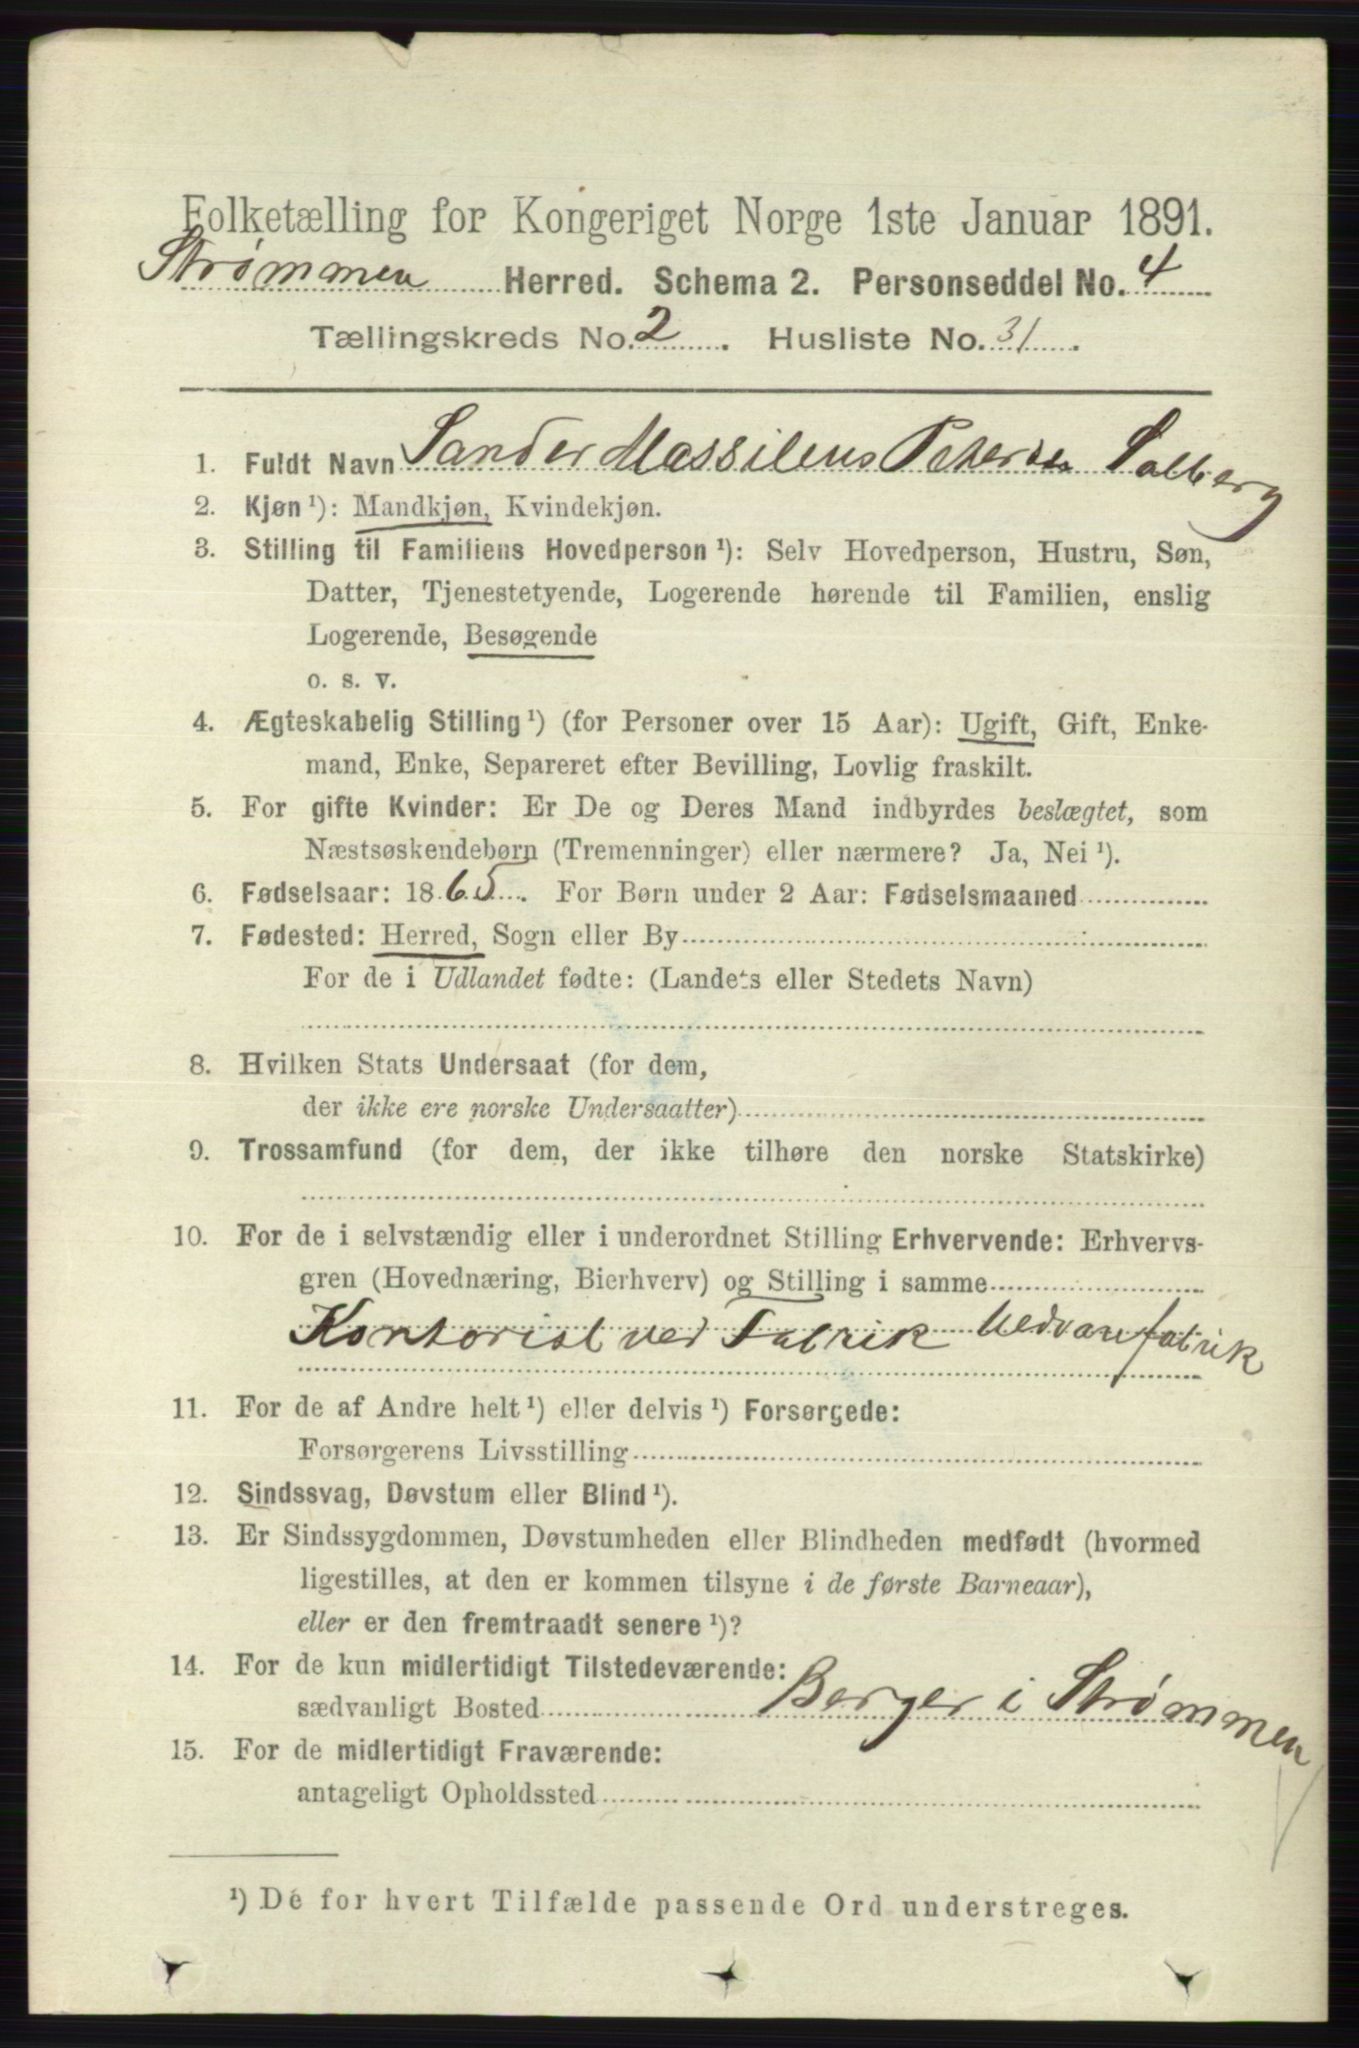 Folketælling for Kongeriget Norge 1ste Januar 1891.
Strømmen Herred. Schema 2. Personseddel No. 4
Tællingskreds No. 2. Husliste No. 31.
1. Fuldt Navn Sander Massilius Petersen Solberg
2. Kjøn ¹): Mandkjøn, Kvindekjøn.
3. Stilling til Familiens Hovedperson ¹): Selv Hovedperson, Hustru, Søn,
Datter, Tjenestetyende, Logerende hørende til Familien, enslig
Logerende, Besøgende
o. s. v.
4. Ægteskabelig Stilling ¹) (for Personer over 15 Aar): Ugift, Gift, Enke-
mand, Enke, Separeret efter Bevilling, Lovlig fraskilt.
5. For gifte Kvinder: Er De og Deres Mand indbyrdes beslægtet, som
Næstsøskendebørn (Tremenninger) eller nærmere? Ja, Nei ¹).
6. Fødselsaar: 1865. For Børn under 2 Aar: Fødselsmaaned
7. Fødested: Herred, Sogn eller By
For de i Udlandet fødte: (Landets eller Stedets Navn)
8. Hvilken Stats Undersaat (for dem,
der ikke ere norske Undersaatter)
9. Trossamfund (for dem, der ikke tilhøre den norske Statskirke)
10. For de i selvstændig eller i underordnet Stilling Erhvervende: Erhvervs-
gren (Hovednæring, Bierhverv) og Stilling i samme
Kontorist ved Fabrik Uldvarefabrik
11. For de af Andre helt ¹) eller delvis ¹) Forsørgede:
Forsørgerens Livsstilling
12. Sindssvag, Døvstum eller Blind ¹).
13. Er Sindssygdommen, Døvstumheden eller Blindheden medfødt (hvormed
ligestilles, at den er kommen tilsyne i de første Barneaar),
eller er den fremtraadt senere ¹)?
14. For de kun midlertidigt Tilstedeværende:
sædvanligt Bosted Berger i Strømmen
15. For de midlertidigt Fraværende:
antageligt Opholdssted
¹) De for hvert Tilfælde passende Ord understreges.